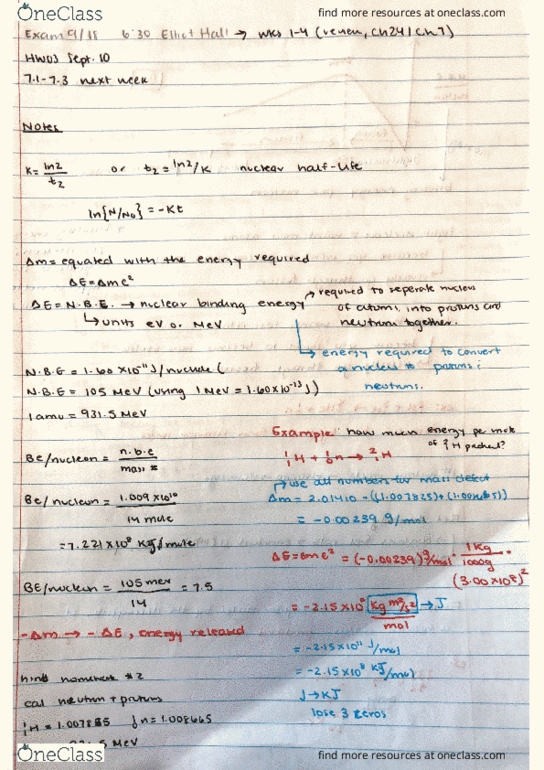 OneClass
find more resources at oneclass.com
Exam 9/18 6:30 Elliot Hall → wks 1-4 (review, Ch24/Ch7)
HW03 Sept. 10
7.1-7.3 next week
Notes
k = ln2/t2 or t2 = ln2/k nuclear half-life
ln[N/N0] = -kt
Δm = equated with the energy required
ΔE = Δmc²
ΔE = N.B.E. → nuclear binding energy
↳ units eV or MeV
required to seperate nucleus
of atom, into protons and
neutrons together.
energy required to convert
a nucleus to protons &
neutrons.
N.B.E = 1.60 x10⁻¹¹ J/nuclide (
N.B.E = 105 MeV (using 1 MeV = 1.60x10⁻¹³ J)
1 amu = 931.5 MeV
BE/nucleon = n.b.e / mass #
BE/nucleon = 1.009 x10¹⁰ / 14 mole
= 7.221 x10⁸ kJ/mole
BE/nucleon = 105 mev / 14 = 7.5
-Δm → -ΔE, energy released
hint homework #2
cal neutron + protons
¹₁H = 1.007825 ¹₀n = 1.008665
931.5 MeV
Example how much energy per mole
of ²₁H
¹₁H + ¹₀n → ²₁H
use all numbers for mass defect
Δm = 2.01410 - ((1.007825)+(1.008665))
= -0.00239 g/mol
ΔE = Δmc² = (-0.00239) g/mol · 1kg/1000g ·
(3.00 x10⁸)²
= -2.15 x10¹¹ kg m²/s² / mol → J
= -2.15 x10¹¹ J/mol
= -2.15 x10⁸ kJ/mol
J → KJ
lose 3 zeros
OneClass
find more resources at oneclass.com